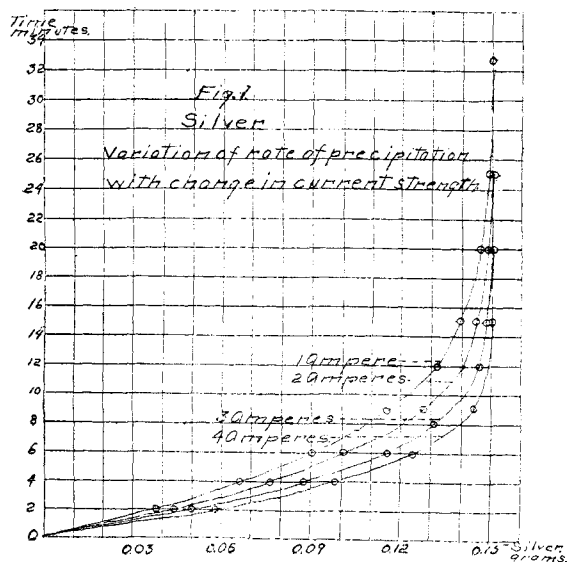 Time
minutes.
34
32
30
28
26
24
22
20
18
16
14
12
10
8
6
4
2
0
Fig. 1.
Silver
Variation of rate of precipitation
with change in current strength
1 Ampere
2 Amperes
3 Amperes
4 Amperes
0.03 0.06 0.09 0.12 0.15 Silver
grams.